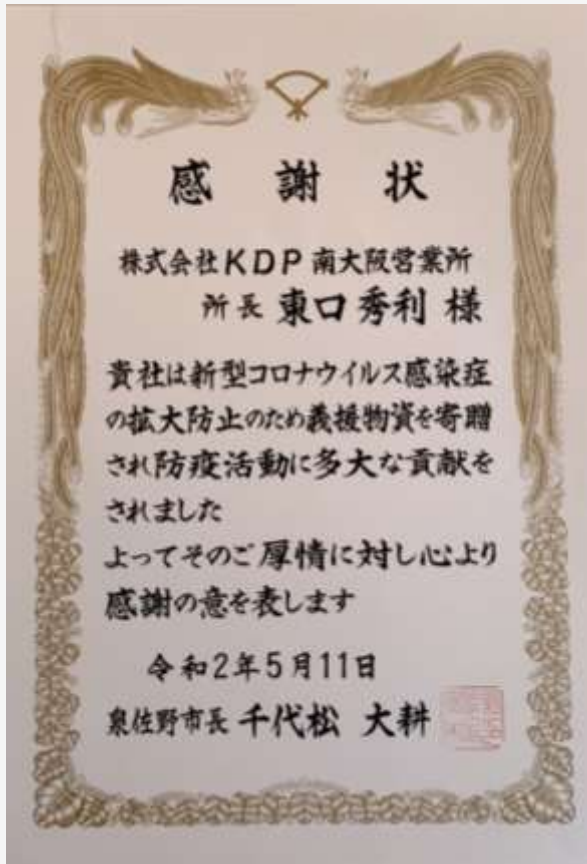 感謝状
株式会社KDP南大阪営業所
所長 東口秀利 様
貴社は新型コロナウイルス感染症
の拡大防止のため義援物資を寄贈
され防疫活動に多大な貢献を
されました
よってそのご厚情に対し心より
感謝の意を表します
令和2年5月11日
泉佐野市長 千代松 大耕